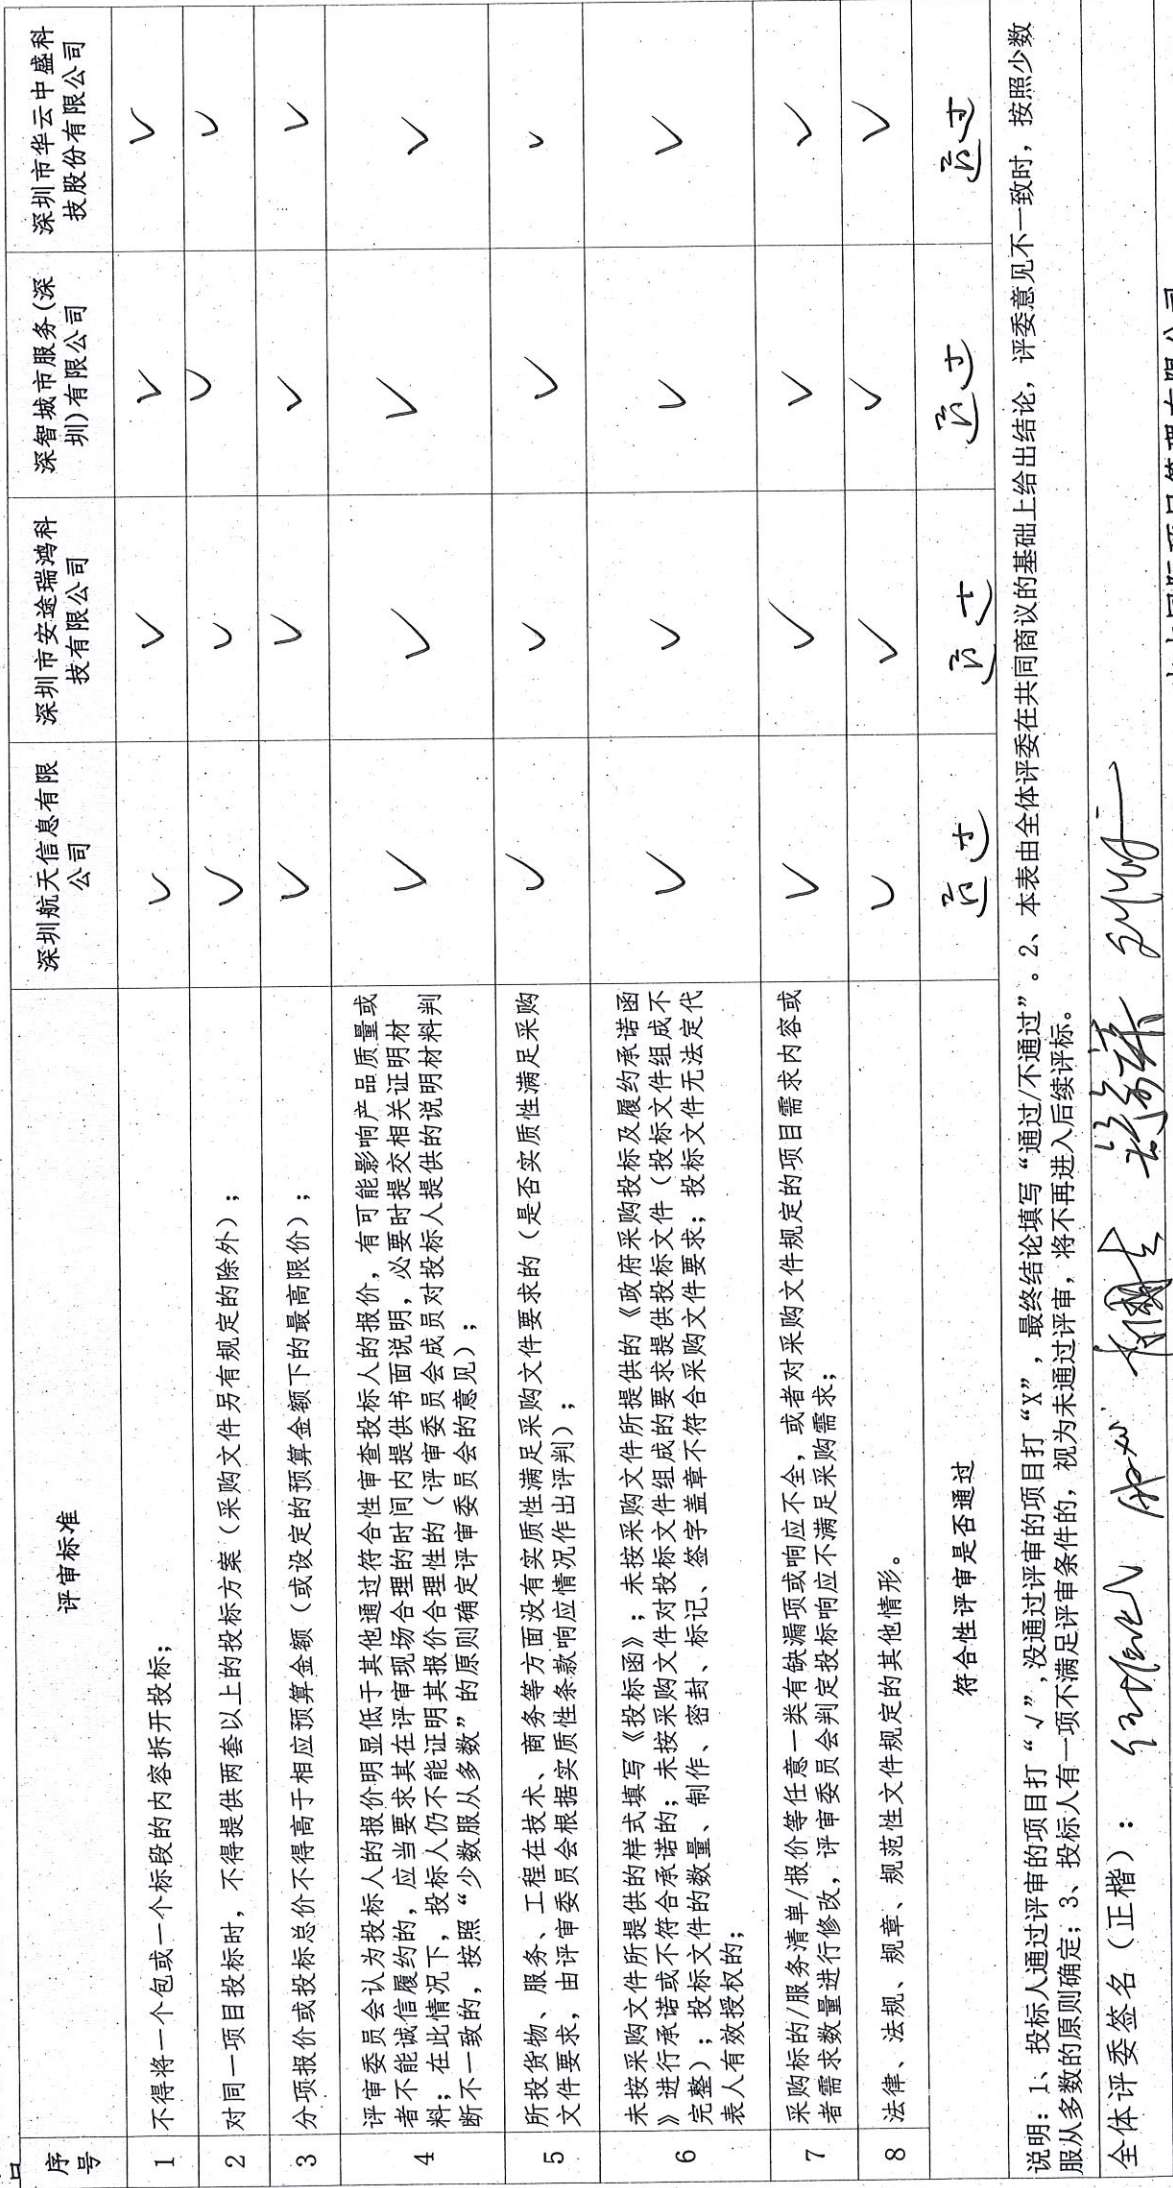 序号 评审标准 深圳航天信息有限公司 深圳市安途瑞鸿科技有限公司 深智城市服务(深圳)有限公司 深圳市华云中盛科技股份有限公司
1 不得将一个包或一个标段的内容拆开投标； √ √ √ √
2 对同一项目投标时，不得提供两套以上的投标方案（采购文件另有规定的除外）； √ √ √ √
3 分项报价或投标总价不得高于相应预算金额（或设定的预算金额下的最高限价）； √ √ √ √
4 评审委员会认为投标人的报价明显低于其他通过符合性审查投标人的报价，有可能影响产品质量或
者不能诚信履约的，应当要求其在评审现场合理的时间内提供书面说明，必要时提交相关证明材
料；在此情况下，投标人仍不能证明其报价合理性的（评审委员会成员对投标人提供的说明材料判
断不一致的，按照“少数服从多数”的原则确定评审委员会的意见）； √ √ √ √
5 所投货物、服务、工程在技术、商务等方面没有实质性满足采购文件要求的（是否实质性满足采购
文件要求，由评审委员会根据实质性条款响应情况作出评判）； √ √ √ √
6 未按采购文件所提供的样式填写《投标函》；未按采购文件所提供的《政府采购投标及履约承诺函
》进行承诺或不符合承诺的；未按采购文件对投标文件组成的要求提供投标文件（投标文件组成不
完整）；投标文件的数量、制作、密封、标记、签字盖章不符合采购文件要求；投标文件无法定代
表人有效授权的； √ √ √ √
7 采购标的/服务清单/报价等任意一类有缺漏项或响应不全，或者对采购文件规定的项目需求内容或
者需求数量进行修改，评审委员会判定投标响应不满足采购需求； √ √ √ √
8 法律、法规、规章、规范性文件规定的其他情形。 √ √ √ √
符合性评审是否通过 通过 通过 通过 通过
说明：1、投标人通过评审的项目打“√”,没通过评审的项目打“X”，最终结论填写“通过/不通过”。2、本表由全体评委在共同商议的基础上给出结论，评委意见不一致时，按照少数
服从多数的原则确定；3、投标人有一项不满足评审条件的，视为未通过评审，将不再进入后续评标。
全体评委签名（正楷）：